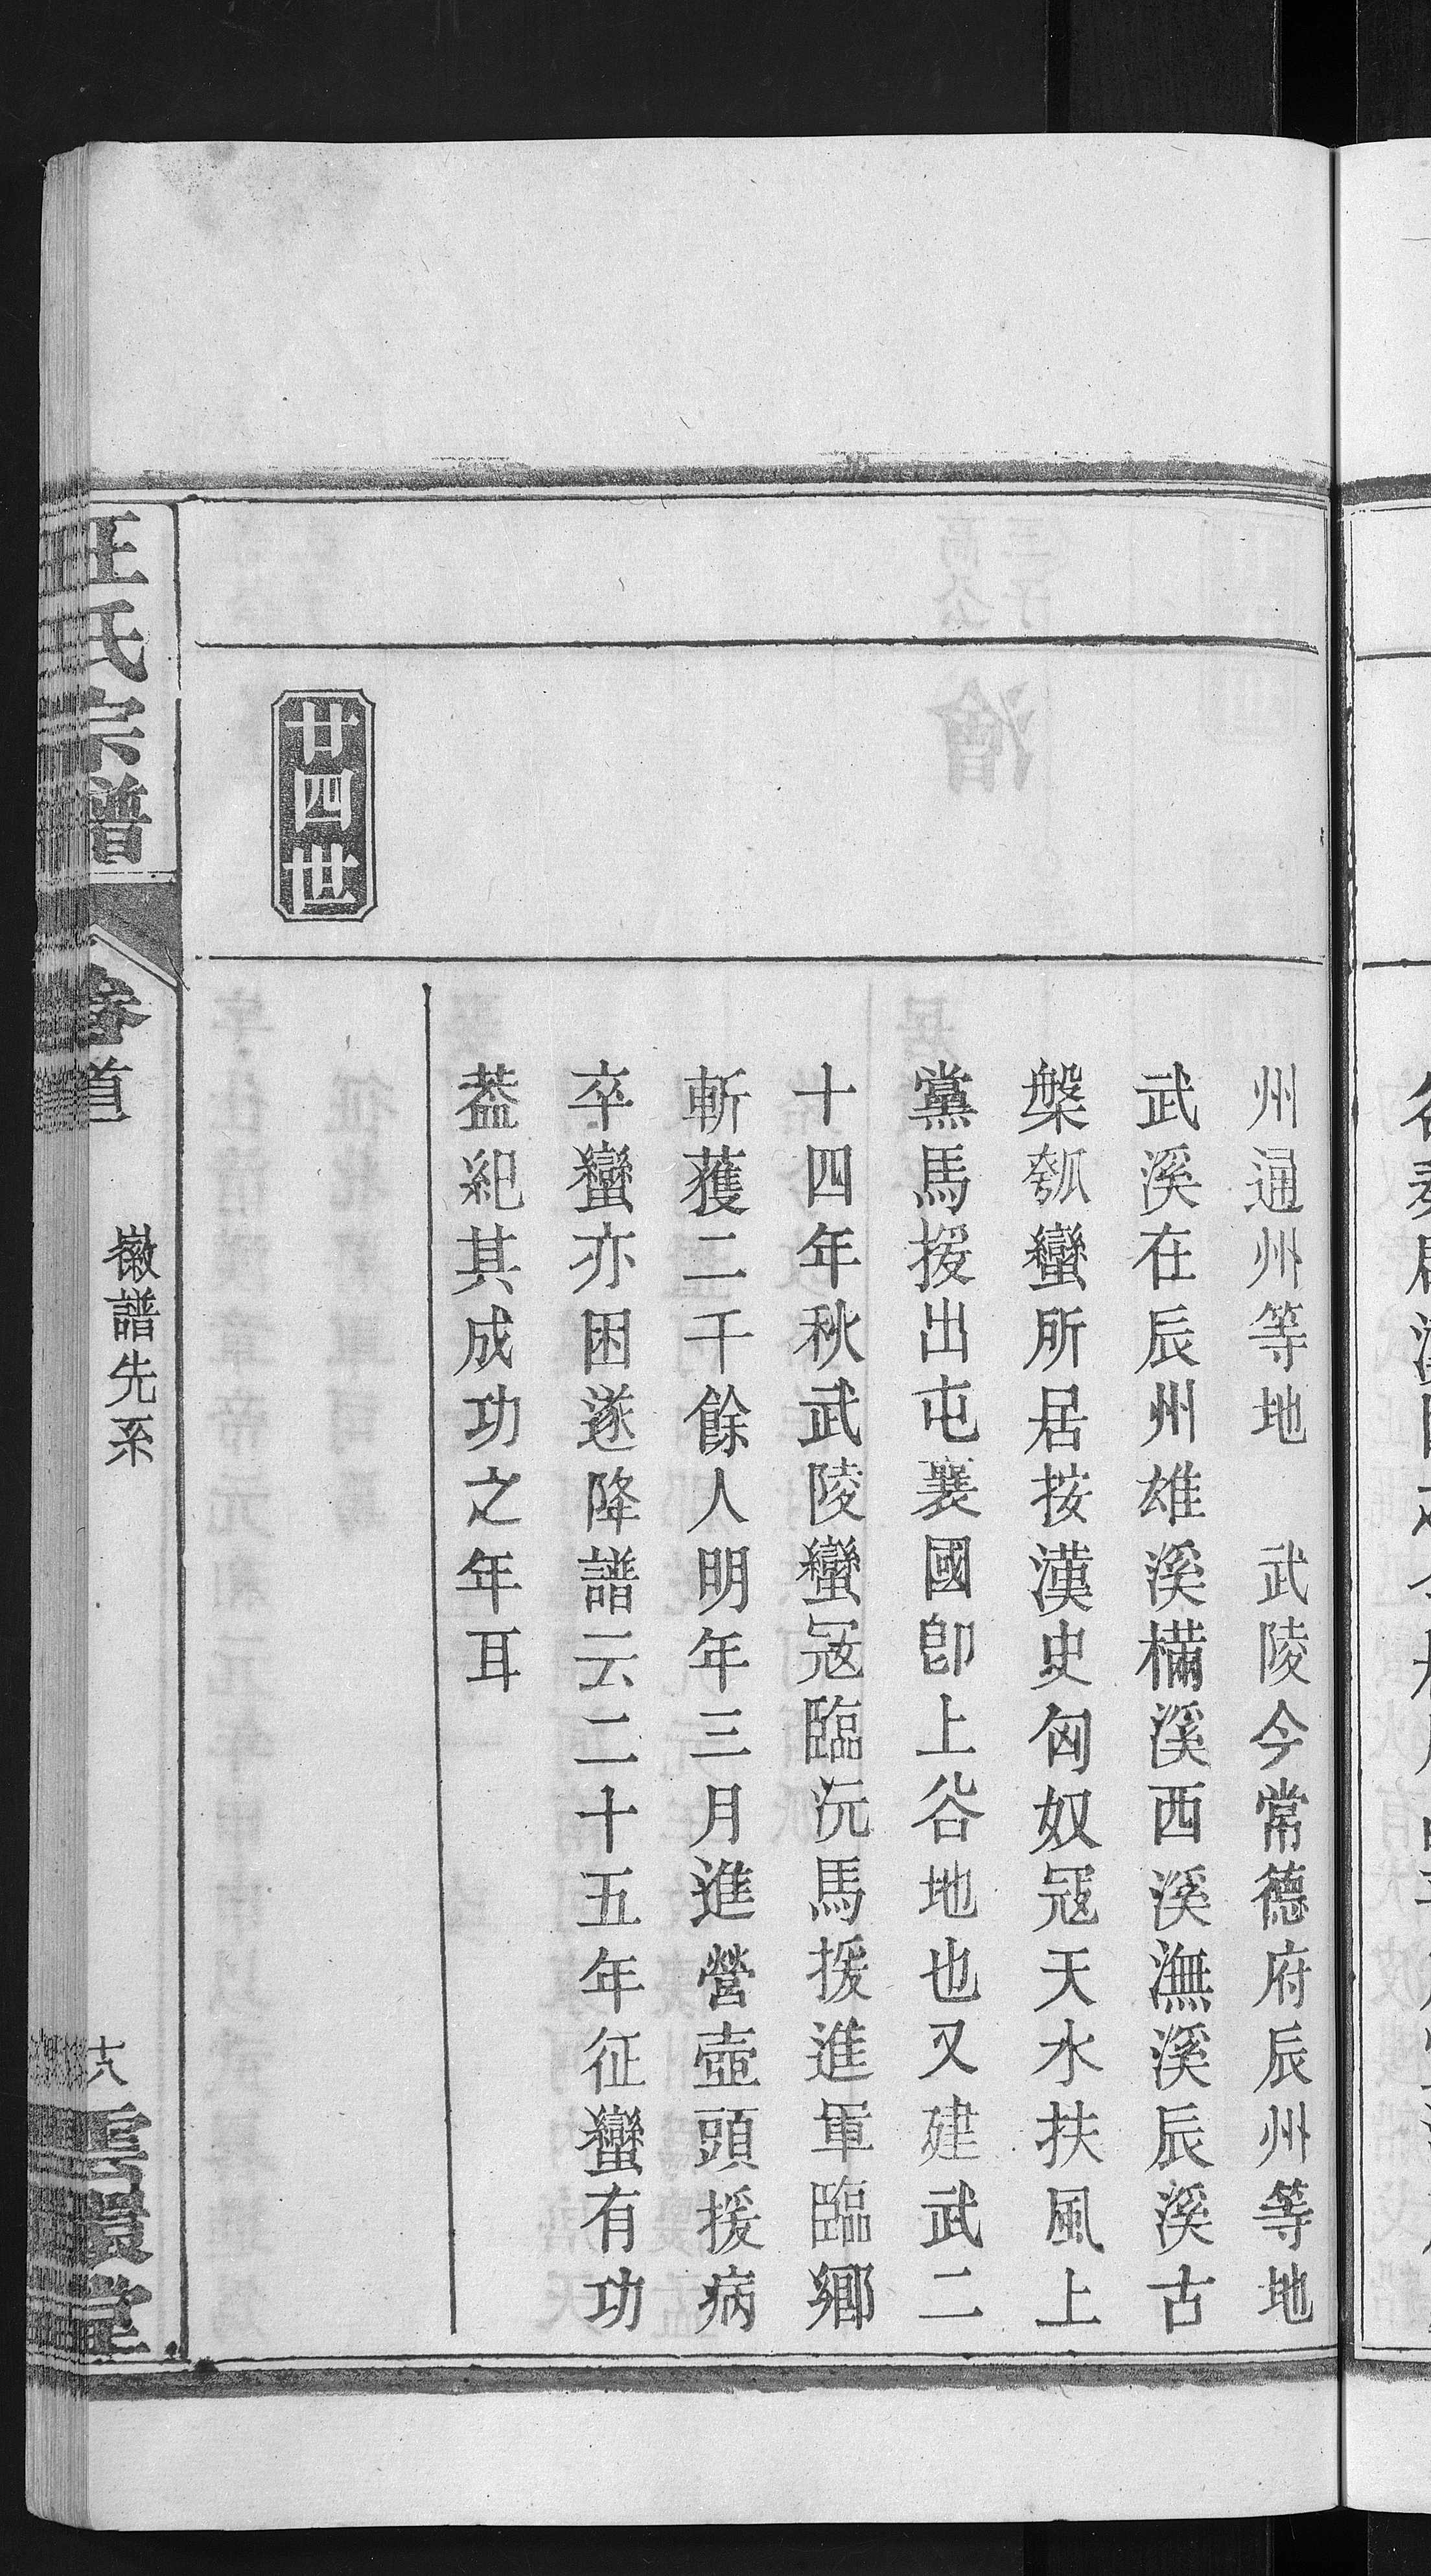 州通州等地　武陵今常德府辰州等地
武溪在辰州雄溪樠溪西溪潕溪辰溪古
槃瓠蠻所居按漢史匈奴寇天水扶風上
黨馬援出屯襄國卽上谷地也又建武二
十四年秋武陵蠻寇臨沅馬援進軍臨鄉
斬獲二千餘人明年三月進營壺頭援病
卒蠻亦困遂降譜云二十五年征蠻有功
葢紀其成功之年耳
廿四世
汪氏宗譜
卷首
徽譜先系
十八